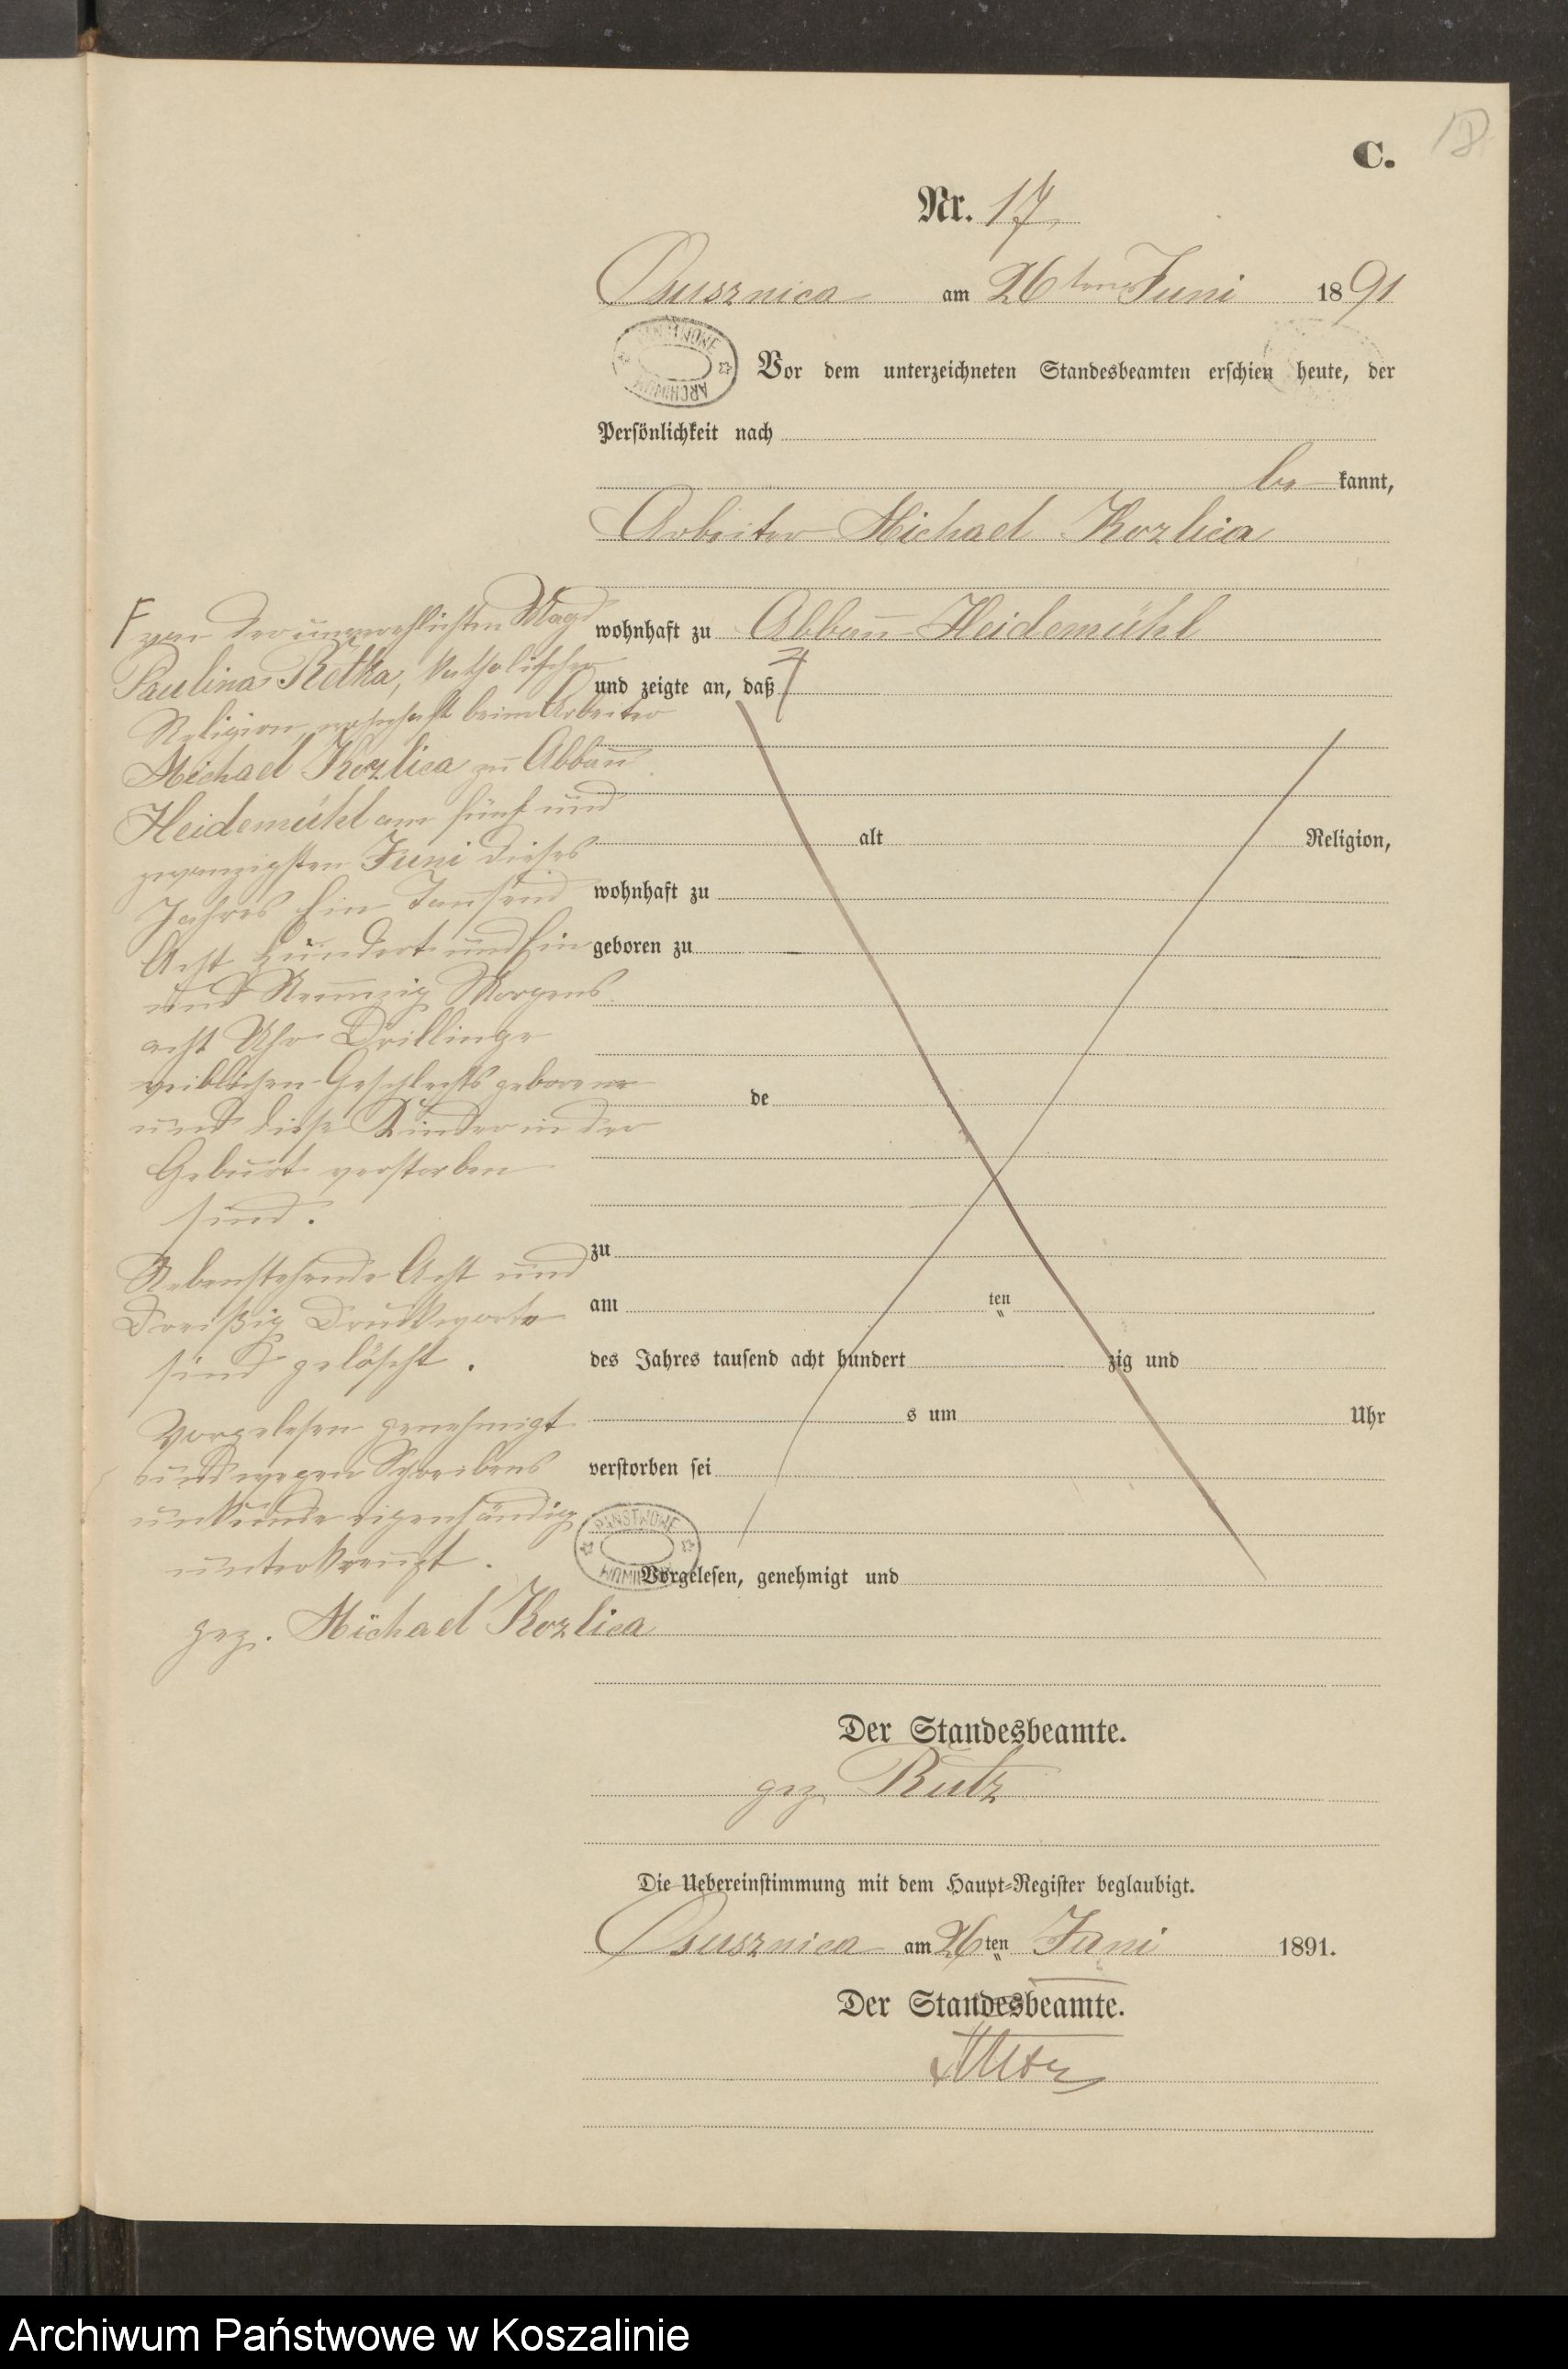 C.
18
Nr. 17
Ossusznica am 26ten Juni 1891
PAŃSTWOWE ARCHIWUM
Vor dem unterzeichneten Standesbeamten erschien heute, der
Persönlichkeit nach
be kannt,
Arbeiter Michael Kozlica
wohnhaft zu Abbau Heidemühl
und zeigte an, daß
alt Religion,
wohnhaft zu
geboren zu
de
zu
am ten
des Jahres tausend acht hundert zig und
s um Uhr
verstorben sei
PAŃSTWOWE ARCHIWUM
Vorgelesen, genehmigt und
von der unverehelichten Magd
Paulina Retka, katholischer
Religion, wohnhaft beim Arbeiter
Michael Kozlica zu Abbau
Heidemühl am fünf und
zwanzigsten Juni dieses
Jahres Ein Tausend
Acht Hundert und Ein
und Neunzig Morgens
acht Uhr Drillinge
weiblichen Geschlechts geboren
und diese Kinder in der
Geburt verstorben
sind.
Nebenstehende Acht und
Dreißig Druckworte
sind gelöscht.
Vorgelesen genehmigt
und wegen Schreibens
unkunde eigenhändig
unterkreuzt.
gez. Michael Kozlica
Der Standesbeamte.
gez. Rutz
Die Uebereinstimmung mit dem Haupt-Register beglaubigt.
Ossusznica am 26ten Juni 1891.
Der Standesbeamte.
Archiwum Państwowe w Koszalinie